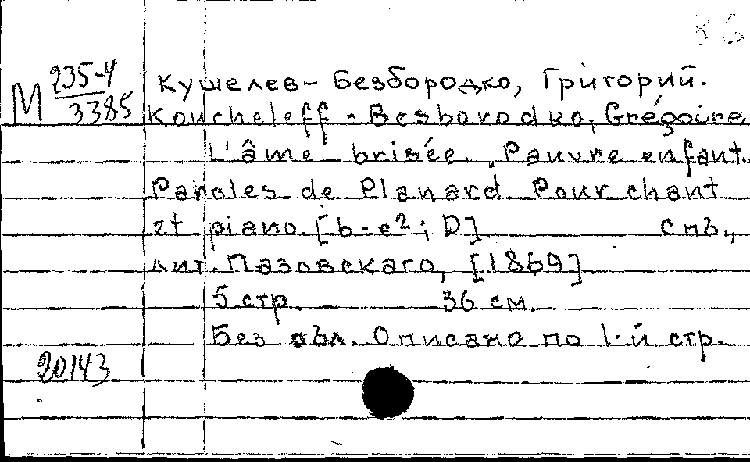 М 235-4
3385
Кушелев-Безбородко, Григорий.
Koucheleff-Besborodko, Grégoire
L'âme brisée. Pauvre enfant.
Paroles de Planard. Pour chant
et piano. [b-e²; D] Спб.,
лит. Пазовскаго, [1869]
5 стр. 36 см.
Без обл. Описано по 1-й стр.
20143